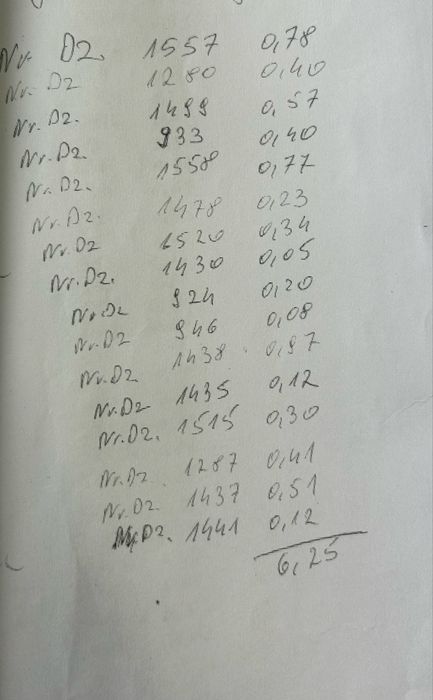 Nr. Dz. 1557 0,78
Nr. Dz 1280 0,40
Nr. Dz. 1499 0,57
Nr. Dz. 933 0,40
Nr. Dz. 1558 0,77
Nr. Dz. 1478 0,23
Nr. Dz 1520 0,34
Nr. Dz. 1430 0,05
Nr. Dz 924 0,20
Nr. Dz 946 0,08
Nr. Dz 1438 0,97
Nr. Dz 1435 0,12
Nr. Dz. 1515 0,30
Nr. Dz. 1287 0,41
Nr. Dz. 1437 0,51
Nr. Dz. 1441 0,12
6,25